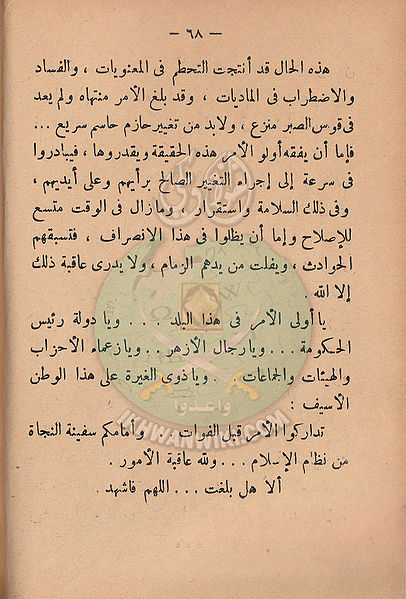 — ٦٨ —
هذه الحال قد أنتجت التحطم فى المعنويات ، والفساد
والاضطراب فى الماديات ، وقد بلغ الأمر منتهاه ولم يعد
فى قوس الصبر منزع ، ولابد من تغيير حازم حاسم سريع ...
فإما أن يفقه أولو الأمر هذه الحقيقة ويقدروها ، فيبادروا
فى سرعة إلى إجراء التغيير الصالح برأيهم وعلى أيديهم ،
وفى ذلك السلامة واستقرار ، ومازال فى الوقت متسع
للإصلاح وإما أن يظلوا فى هذا الانصراف ، فتسبقهم
الحوادث ، ويفلت من يدهم الزمام ، ولا يدرى عاقبة ذلك
إلا الله .
يا أولى الأمر فى هذا البلد ... ويا دولة رئيس
الحكومة ... ويارجال الأزهر .. ويازعماء الأحزاب
والهيئات والجماعات . . ويا ذوى الغيرة على هذا الوطن
الأسيف :
تداركوا الأمر قبل الفوات .. وأمامكم سفينة النجاة
من نظام الإسلام ... ولله عاقبة الأمور .
ألا هل بلغت ... اللهم فاشهد .
وأعدوا
IKHWANWIKI.COM